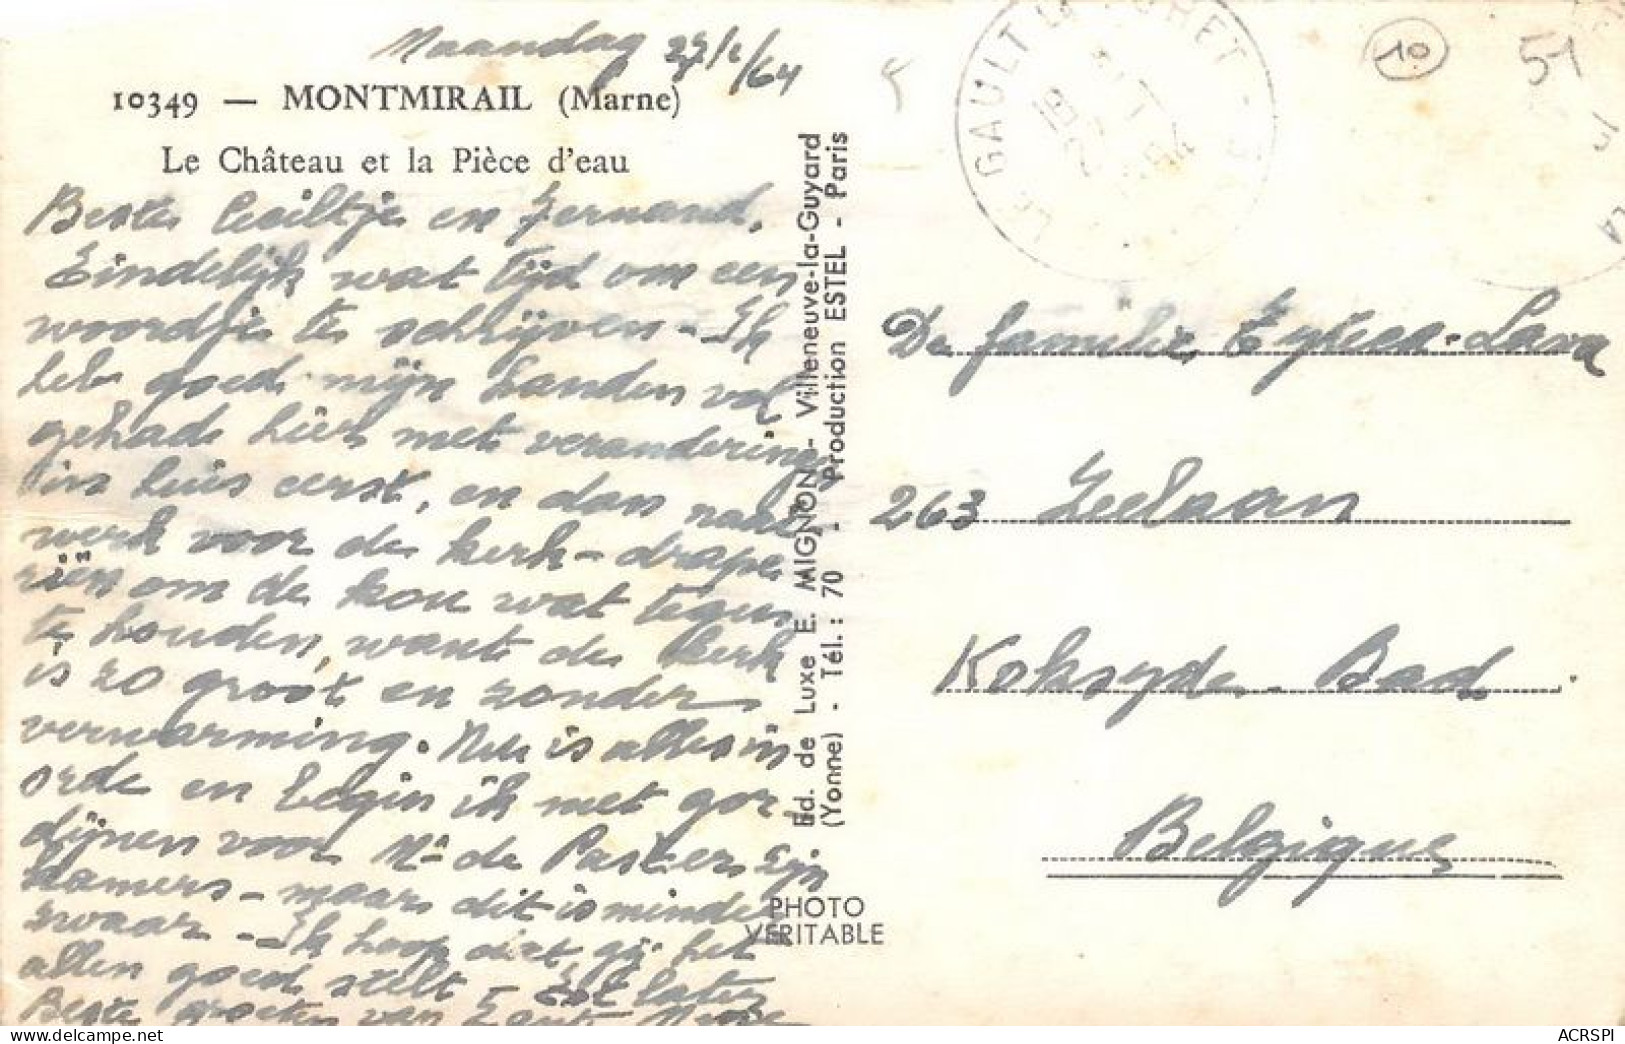 Maandag 27/1/64
10349 — MONTMIRAIL (Marne)
Le Château et la Pièce d'eau
Beste en Fernand,
Eindelijk wat tijd om een
woordje te schrijven - Ik
heb goed mijn handen vol
gehad hier met veranderingen
in huis eerst, en dan naai
werk voor de kerk - drape
riën om de kou wat tegen
te houden, want de kerk
is zo groot en zonder
verwarming. Nu is alles in
orde en begin ik met gor
dijnen voor Mr de Paster zijn
kamers - maar dit is minder
zwaar - Ik hoop dat gij het
allen goed stelt - Tot later
Beste groeten van
Ed. de Luxe E. MIGNON - Villeneuve-la-Guyard
(Yonne) - Tél. : 70 - Production ESTEL - Paris
PHOTO
VÉRITABLE
LE GAULT LA FORET
10
51
De familie
263 Zeelaan
Koksyde - Bad
Belgique
ACRSPI